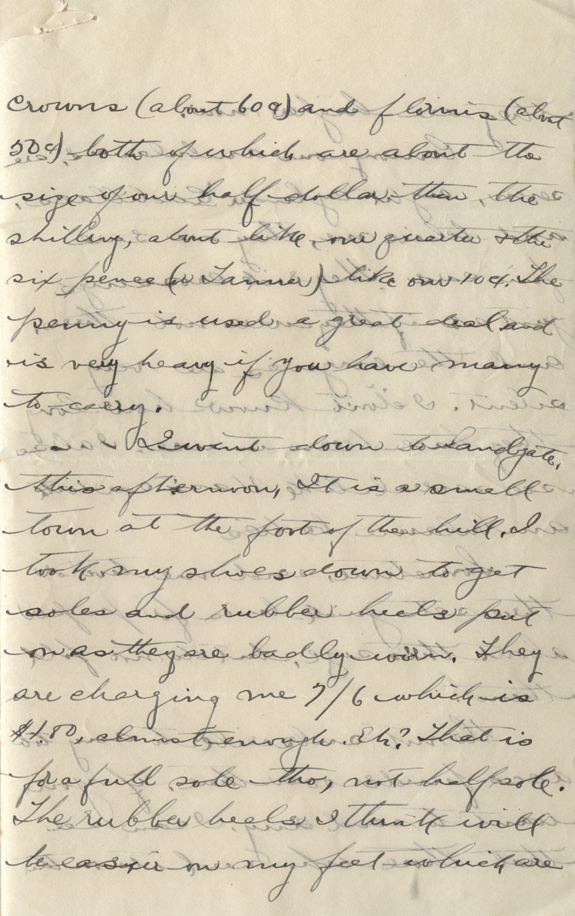 crowns (about 60¢) and florins (about
50¢) both of which are about the
size of our half dollar then, the
shilling, about like, our quarter & the
six pence (or Tanner) like our 10¢. The
penny is used a great deal and
is very heavy if you have many
to carry.
I went down to Sandgate,
this afternoon, It is a small
town at the foot of the hill. I
took my shoes down to get
soles and rubber heels put
on as they are badly worn. They
are charging me 7/6 which is
$1.80, almost enough. Eh? That is
for a full sole tho, not half sole.
The rubber heels I think will
be easier on my feet which are